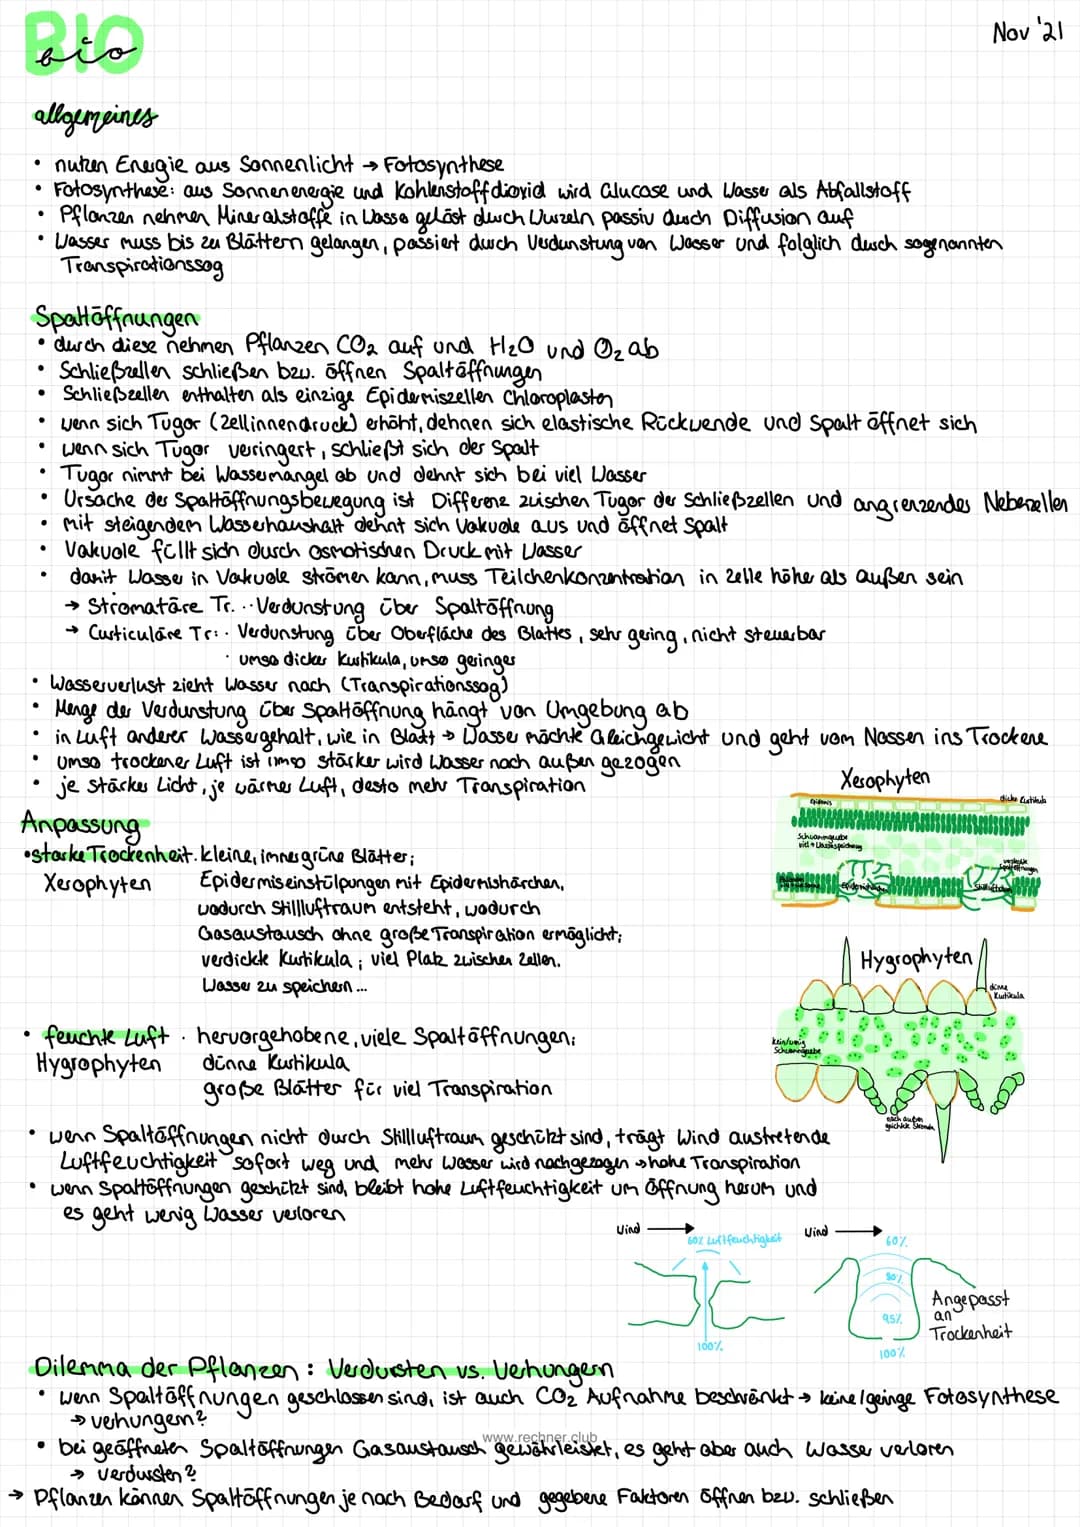 BIO
bio
Nov '21
allgemeines
• nutzen Energie aus Sonnenlicht → Fotosynthese
• Fotosynthese: aus Sonnenenergie und Kohlenstoffdioxid wird Glucose und Wasser als Abfallstoff
• Pflanzen nehmen Mineralstoffe in Wasser gelöst durch Wurzeln passiv durch Diffusion auf
• Wasser muss bis zu Blättern gelangen, passiert durch Verdunstung von Wasser und folglich durch sogenannten
Transpirationssog
Spaltöffnungen
• durch diese nehmen Pflanzen CO₂ auf und H₂O und O₂ ab
• Schließzellen schließen bzw. öffnen Spaltöffnungen
• Schließzellen enthalten als einzige Epidermiszellen Chloroplasten
• wenn sich Tugor (Zellinnendruck) erhöht, dehnen sich elastische Rückwende und Spalt öffnet sich
• wenn sich Tugor verringert, schließt sich der Spalt
• Tugor nimmt bei Wassermangel ab und dehnt sich bei viel Wasser
• Ursache der Spaltöffnungsbewegung ist Differenz zwischen Tugor der Schließzellen und angrenzendes Nebenzellen
• mit steigendem Wasserhaushalt dehnt sich Vakuole aus und öffnet Spalt
• Vakuole füllt sich durch osmotischen Druck mit Wasser
• damit Wasser in Vakuole strömen kann, muss Teilchenkonzentration in Zelle höher als außen sein
→ Stromatäre Tr. .. Verdunstung über Spaltöffnung
→ Curticuläre Tr: . Verdunstung über Oberfläche des Blattes, sehr gering, nicht steuerbar
· umso dicker Kutikula, umso geringer
• Wasserverlust zieht Wasser nach (Transpirationssog)
• Menge der Verdunstung über Spaltöffnung hängt von Umgebung ab
• in Luft anderer Wassergehalt, wie in Blatt → Wasser möchte Gleichgewicht und geht vom Nassen ins Trockene
• umso trockener Luft ist umso stärker wird Wasser nach außen gezogen
• je stärker Licht, je wärmer Luft, desto mehr Transpiration
Xerophyten
Epidermis
dicke Cutikula
Schwammgewebe
viel → Wasserspeicherung
Epidermishärchen
versteckte Spaltöffnungen
Stillluftraum
Anpassung
• starke Trockenheit. kleine, immergrüne Blätter;
Xerophyten
Epidermiseinstülpungen mit Epidermishärchen,
wodurch Stillluftraum entsteht, wodurch
Gasaustausch ohne große Transpiration ermöglicht;
verdickte Kutikula; viel Platz zwischen Zellen.
Wasser zu speichern...
Hygrophyten
dünne Kutikula
kein/wenig
Schwammgewebe
nach außen
gerichtete Stomata
• feuchte Luft . hervorgehobene, viele Spaltöffnungen;
Hygrophyten
dünne Kutikula
große Blätter für viel Transpiration
• wenn Spaltöffnungen nicht durch Stillluftraum geschützt sind, trägt Wind austretende
Luftfeuchtigkeit sofort weg und mehr Wasser wird nachgezogen → hohe Transpiration
• wenn Spaltöffnungen geschützt sind, bleibt hohe Luftfeuchtigkeit um Öffnung herum und
es geht wenig Wasser verloren
Wind
60% Luftfeuchtigkeit
100%
Wind
60%
80%
95%
100%
Angepasst
an
Trockenheit
Dilemma der Pflanzen: Verdursten vs. Verhungern
• wenn Spaltöffnungen geschlossen sind, ist auch CO₂ Aufnahme beschränkt → keine/geringe Fotosynthese
→ verhungern?
www.rechner.club
• bei geöffneten Spaltöffnungen Gasaustausch gewährleistet, es geht aber auch Wasser verloren
→ verdursten?
→ Pflanzen können Spaltöffnungen je nach Bedarf und gegebene Faktoren öffnen bzw. schließen